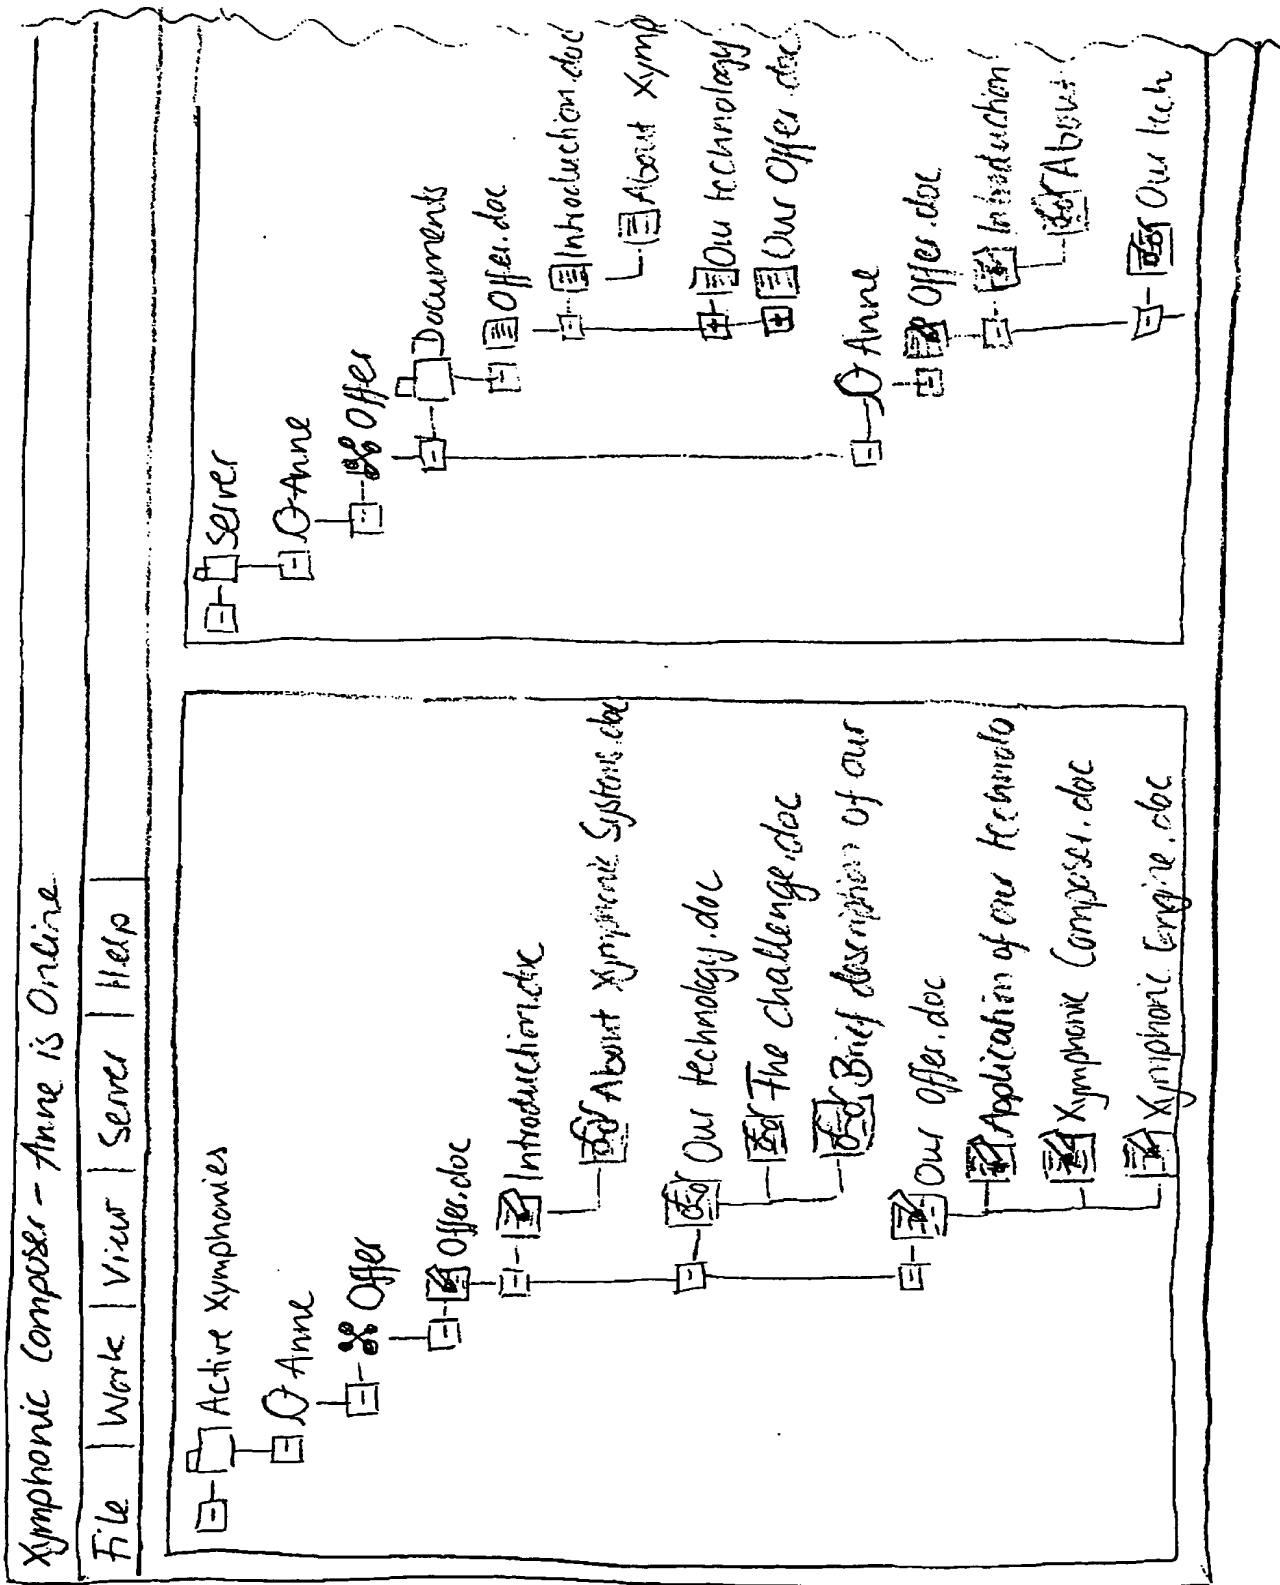 Xymphonic Composer - Anne is Online
File | Work | View | Server | Help
Active Xymphonies
Anne
Offer
Offer.doc
Introduction.doc
About Xymphonic Systems.doc
Our technology.doc
The challenge.doc
Brief description of our
Our Offer.doc
Application of our technolo
Xymphonic Composer.doc
Xymphonic Engine.doc
Server
Anne
Offer
Documents
Offer.doc
Introduction.doc
About Xymp
Our technology
Our Offer.doc
Anne
Offer.doc
Introduction
About
Our tech